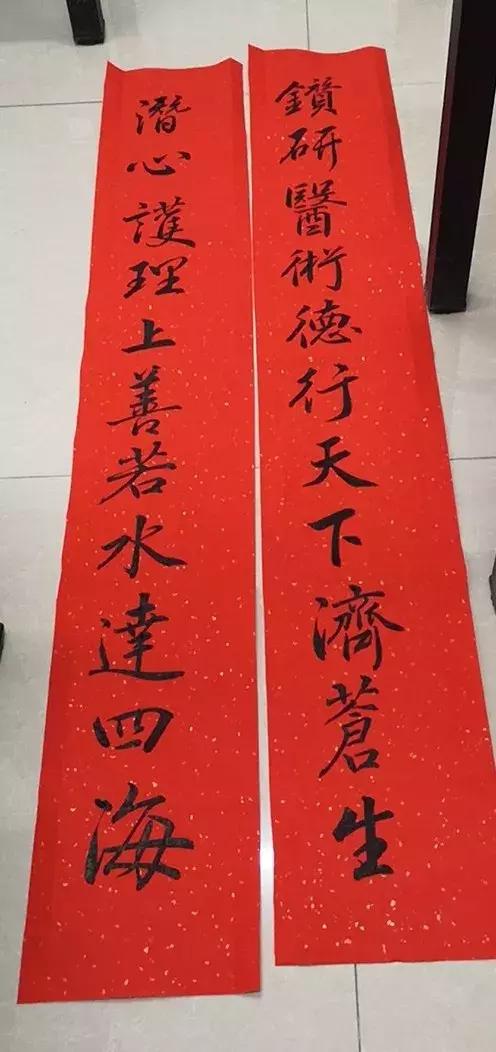 鑽研醫術德行天下濟蒼生
潛心護理上善若水達四海